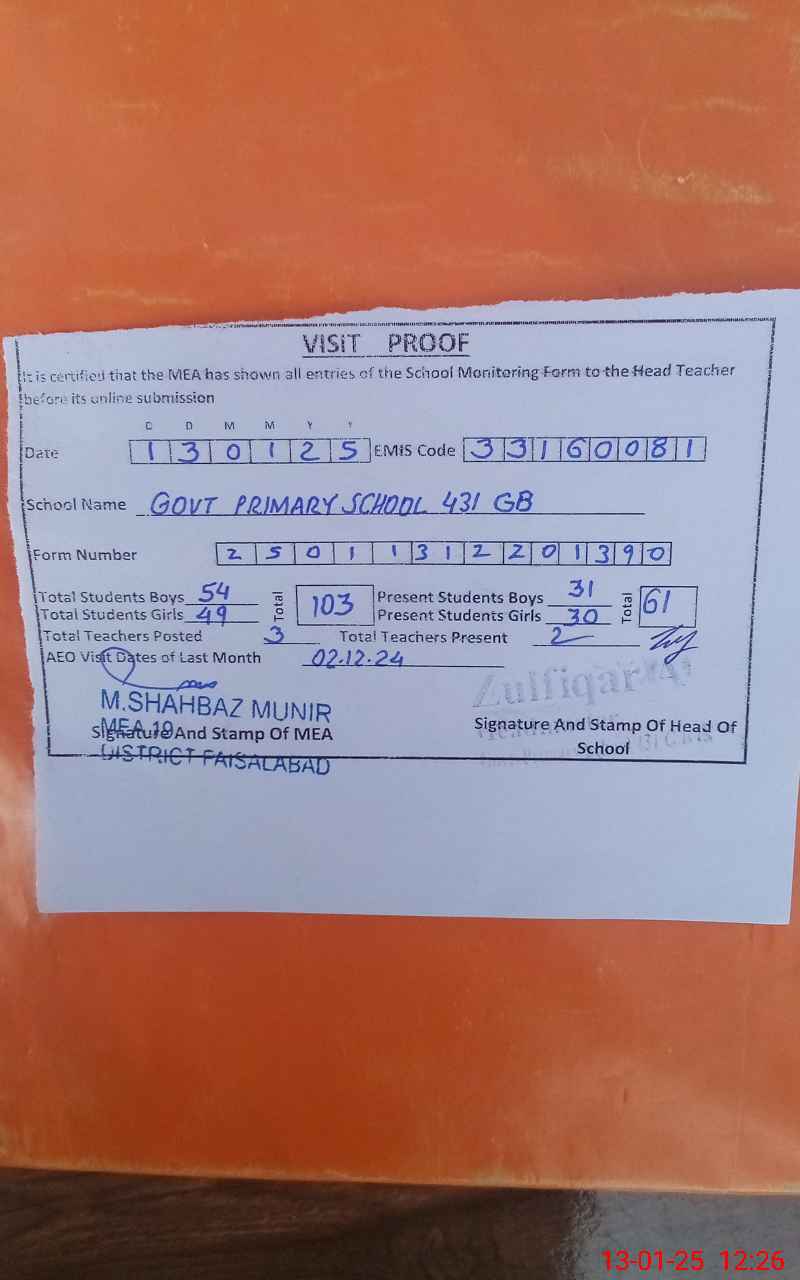 VISIT PROOF
It is certified that the MEA has shown all entries of the School Monitoring Form to the Head Teacher
before its online submission
D D M M Y Y
Date 1 3 0 1 2 5 EMIS Code 3 3 1 6 0 0 8 1
School Name GOVT PRIMARY SCHOOL 431 GB
Form Number 2 5 0 1 1 3 1 2 2 0 1 3 9 0
Total Students Boys 54 Total 103 Present Students Boys 31 Total 61
Total Students Girls 49 Present Students Girls 30
Total Teachers Posted 3 Total Teachers Present 2
AEO Visit Dates of Last Month 02.12.24
M.SHAHBAZ MUNIR
Zulfiqar Ali
MEA 19
Signature And Stamp Of MEA
Signature And Stamp Of Head Of
School
DISTRICT FAISALABAD
13-01-25 12:26